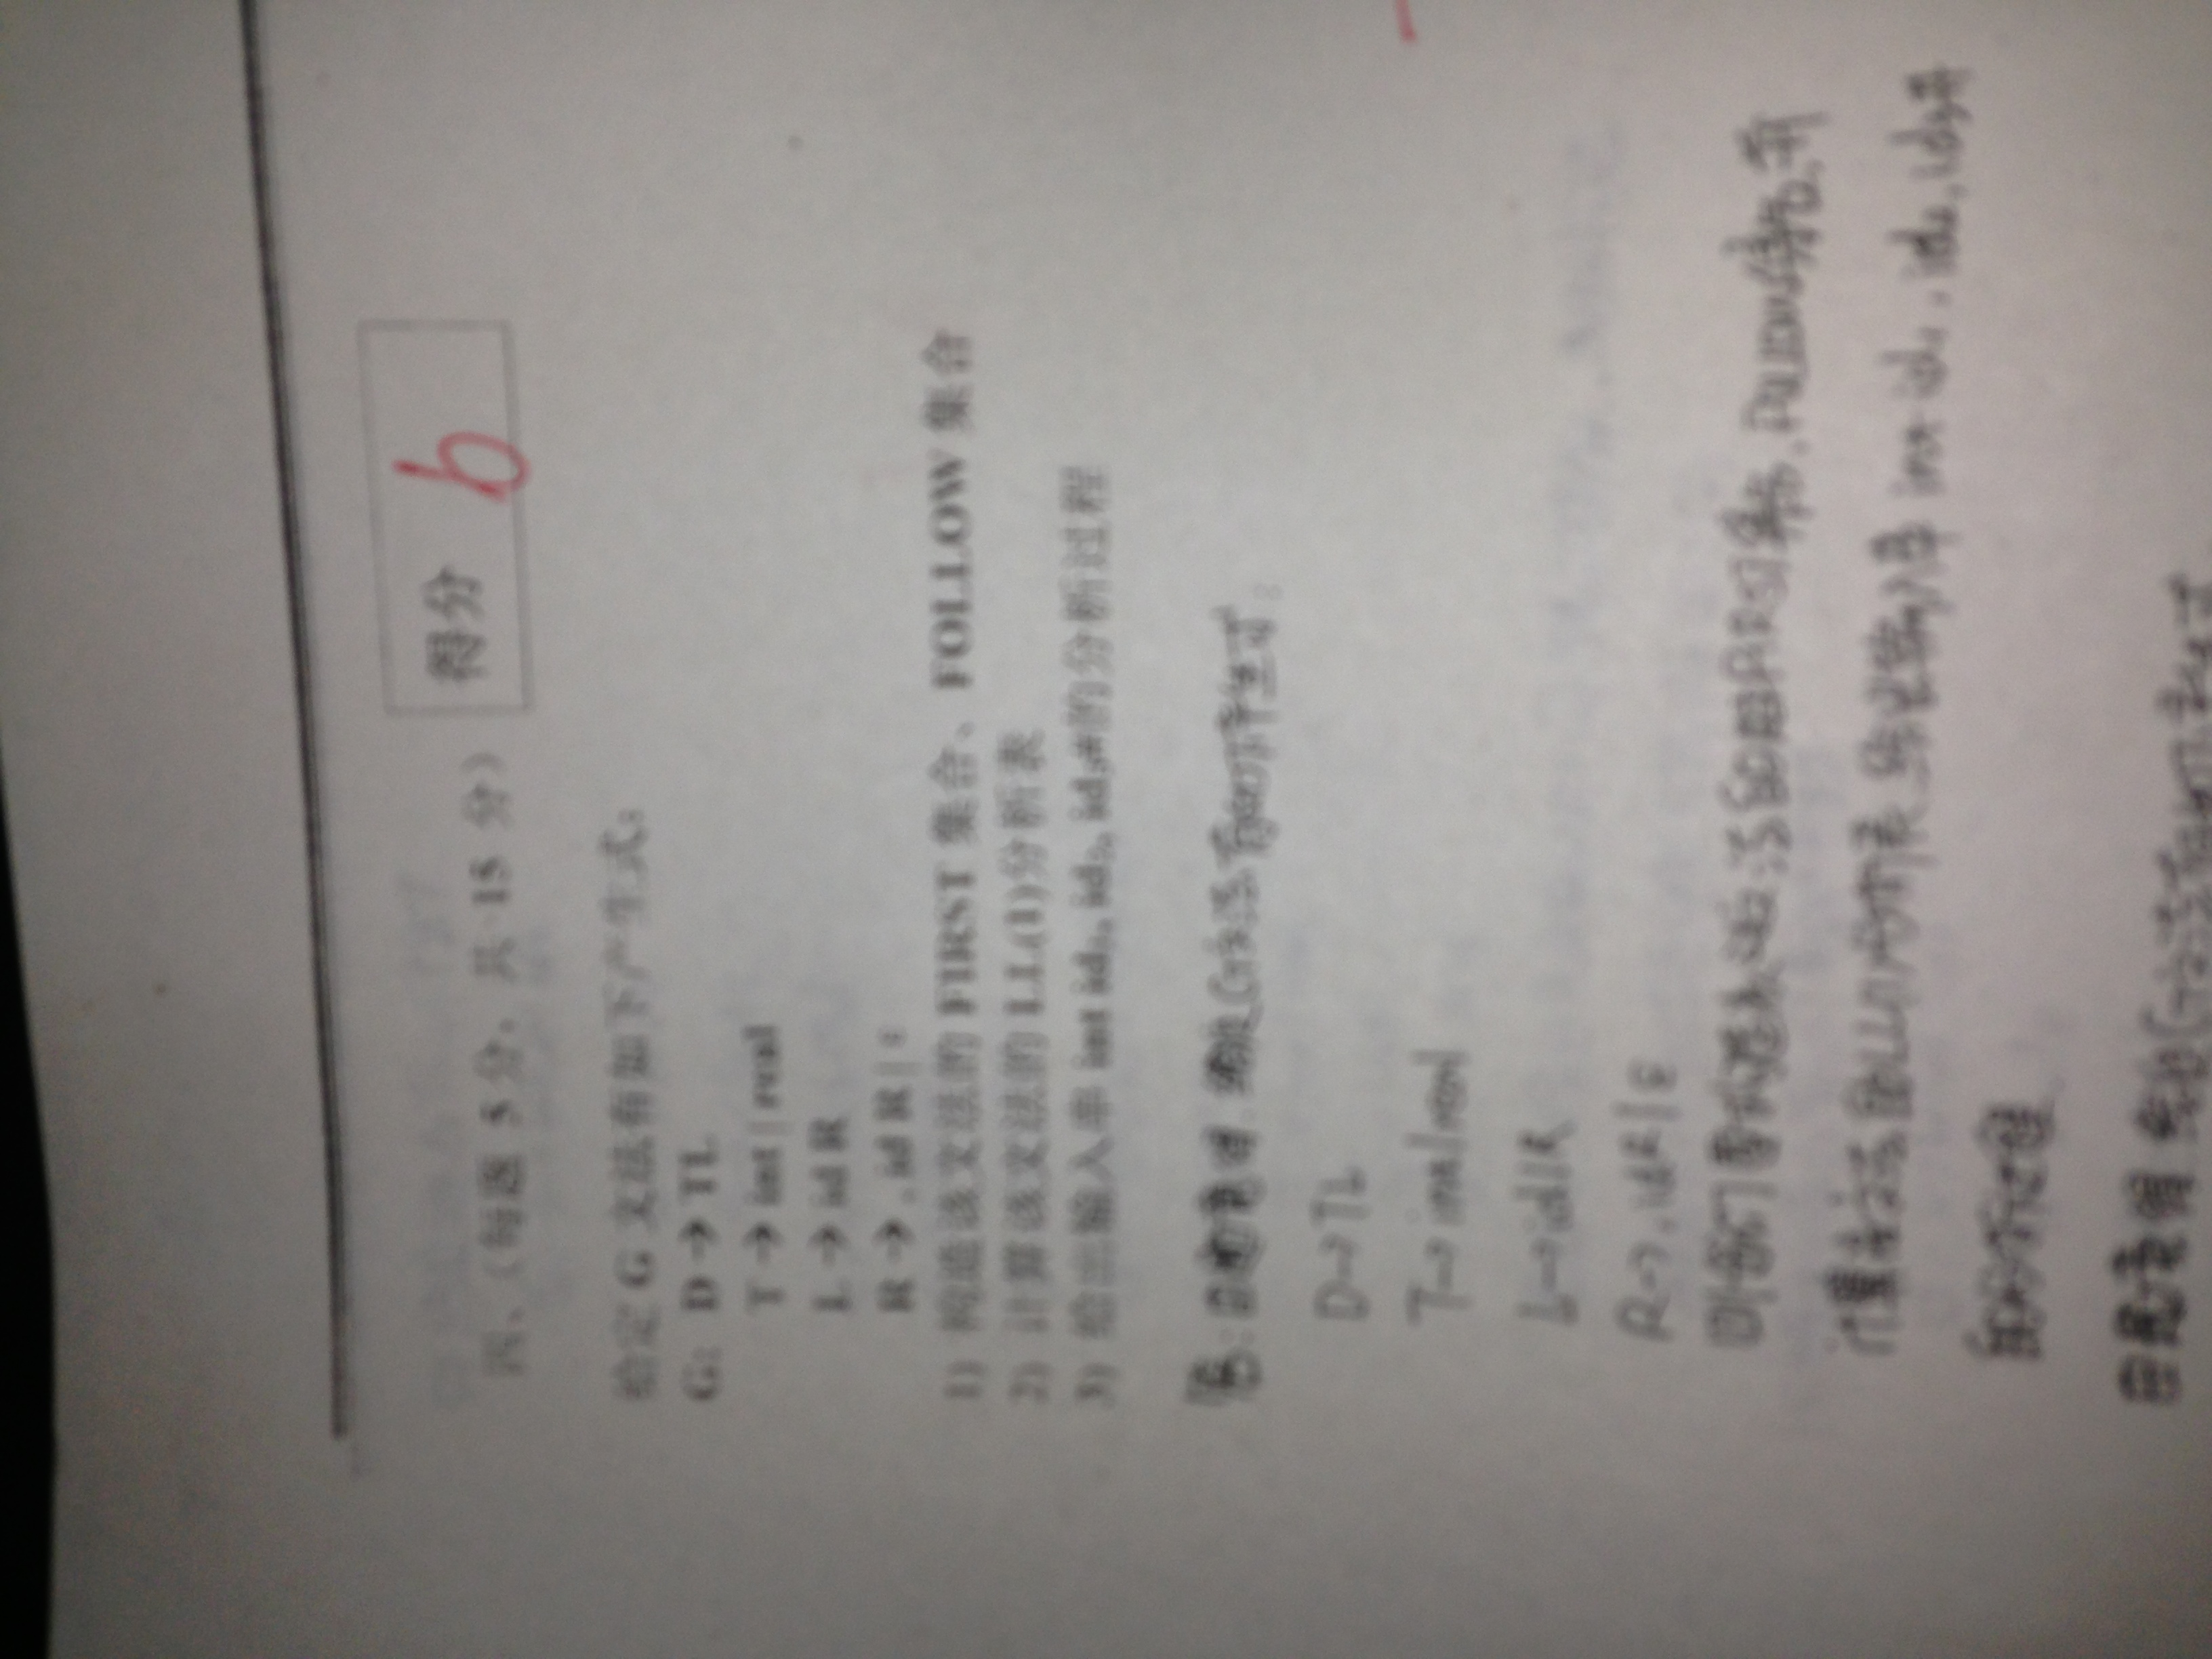 四、（每题 5 分，共 15 分）
得分 6
给定 G 文法有如下产生式：
G: D → TL
T → int | real
L → id R
R → , id R | ε
1) 构造该文法的 FIRST 集合、FOLLOW 集合
2) 计算该文法的 LL(1)分析表
3) 给出输入串 int id₁, id₂, id₃#的分析过程
答: 由题意得, 给定G文法有如下产生式:
D→TL
T→int|real
L→idR
R→,idR|ε
则我们要构造该文法的 FIRST集合, FOLLOW集合, 并
计算该文法的LL(1)分析表, 给出输入串 int id₁, id₂, id₃#
的分析过程
由题意得 给定G文法有如下产生式